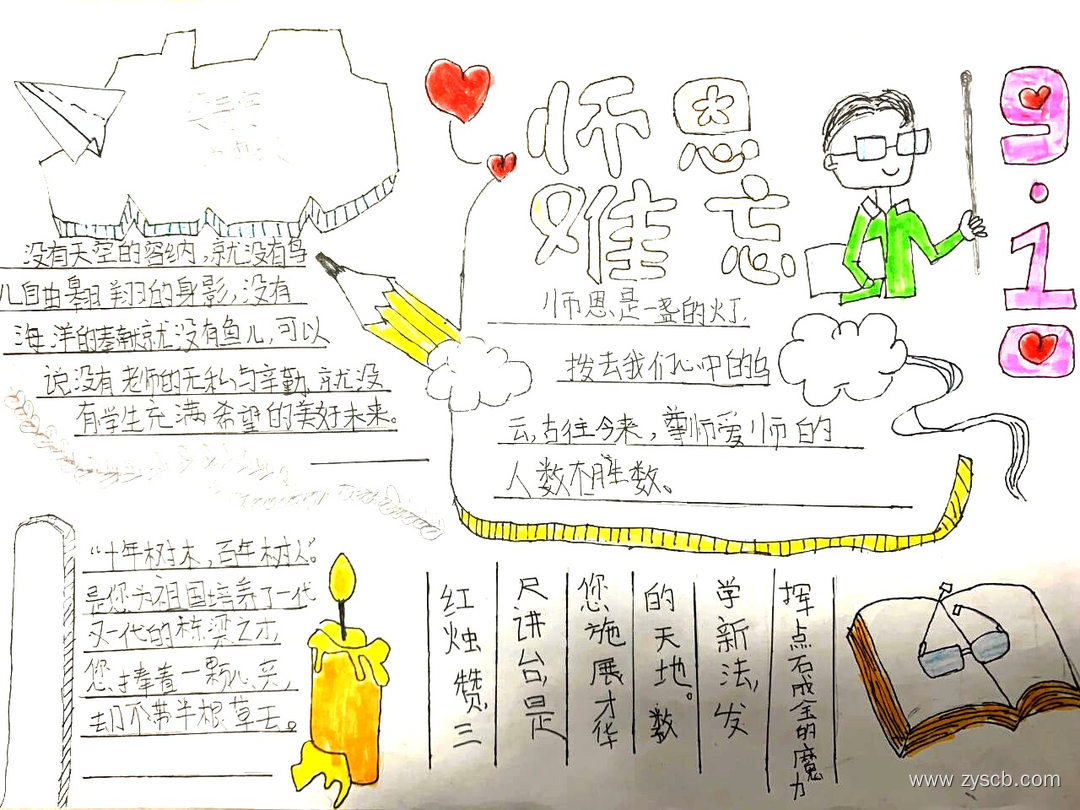 师恩
难忘
9.10
没有天空的容纳,就没有鸟
儿自由翱翔的身影,没有
海洋的奉献就没有鱼儿,可以
说没有老师的无私与辛勤,就没
有学生充满希望的美好未来。
师恩是一盏的灯,
拨去我们心中的乌
云,古往今来,尊师爱师的
人数不胜数。
“十年树木,百年树人”。
是您为祖国培养了一代
又一代的栋梁之才,
您捧着一颗心来,
却不带半根草去。
红烛赞,三
尺讲台,是
您施展才华
的天地。数
学新法,发
挥点石成金的魔力
www.zyscb.com